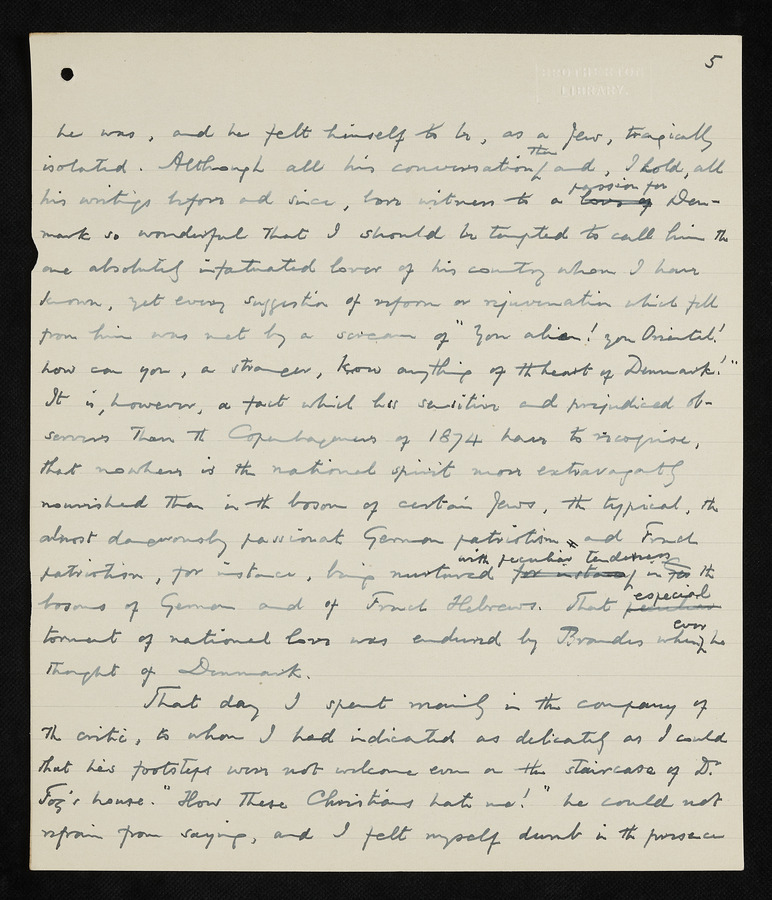 5
LIBRARY.
he was, and he felt himself to be, as a Jew, tragically
isolated. Although all his conversation then and, I hold, all
his writings before and since, bore witness to a passion for love of Den-
mark so wonderful that I should be tempted to call him the
one absolutely infatuated lover of his country whom I have
known, yet every suggestion of reform or rejuvenation which fell
from him was met by a scream of "You alien! you Oriental!
how can you, a stranger, know anything of the heart of Denmark!"
It is, however, a fact which less sensitive and prejudiced ob-
servers than the Copenhageners of 1874 have to recognise,
that nowhere is the national spirit more extravagantly
nourished than in the bosom of certain Jews, the typical, the
almost dangerously passionate German patriotism and French
patriotism, for instance, being nurtured with peculiar tenderness for instance in the the
bosoms of German and of French Hebrews. That especial peculiar
torment of national love was endured by Brandes whenever he
thought of Denmark.
That day I spent mainly in the company of
the critic, to whom I had indicated as delicately as I could
that his footsteps were not welcome even on the staircase of Dr.
Fog's house. "How these Christians hate me!" he could not
refrain from saying, and I felt myself dumb in the presence